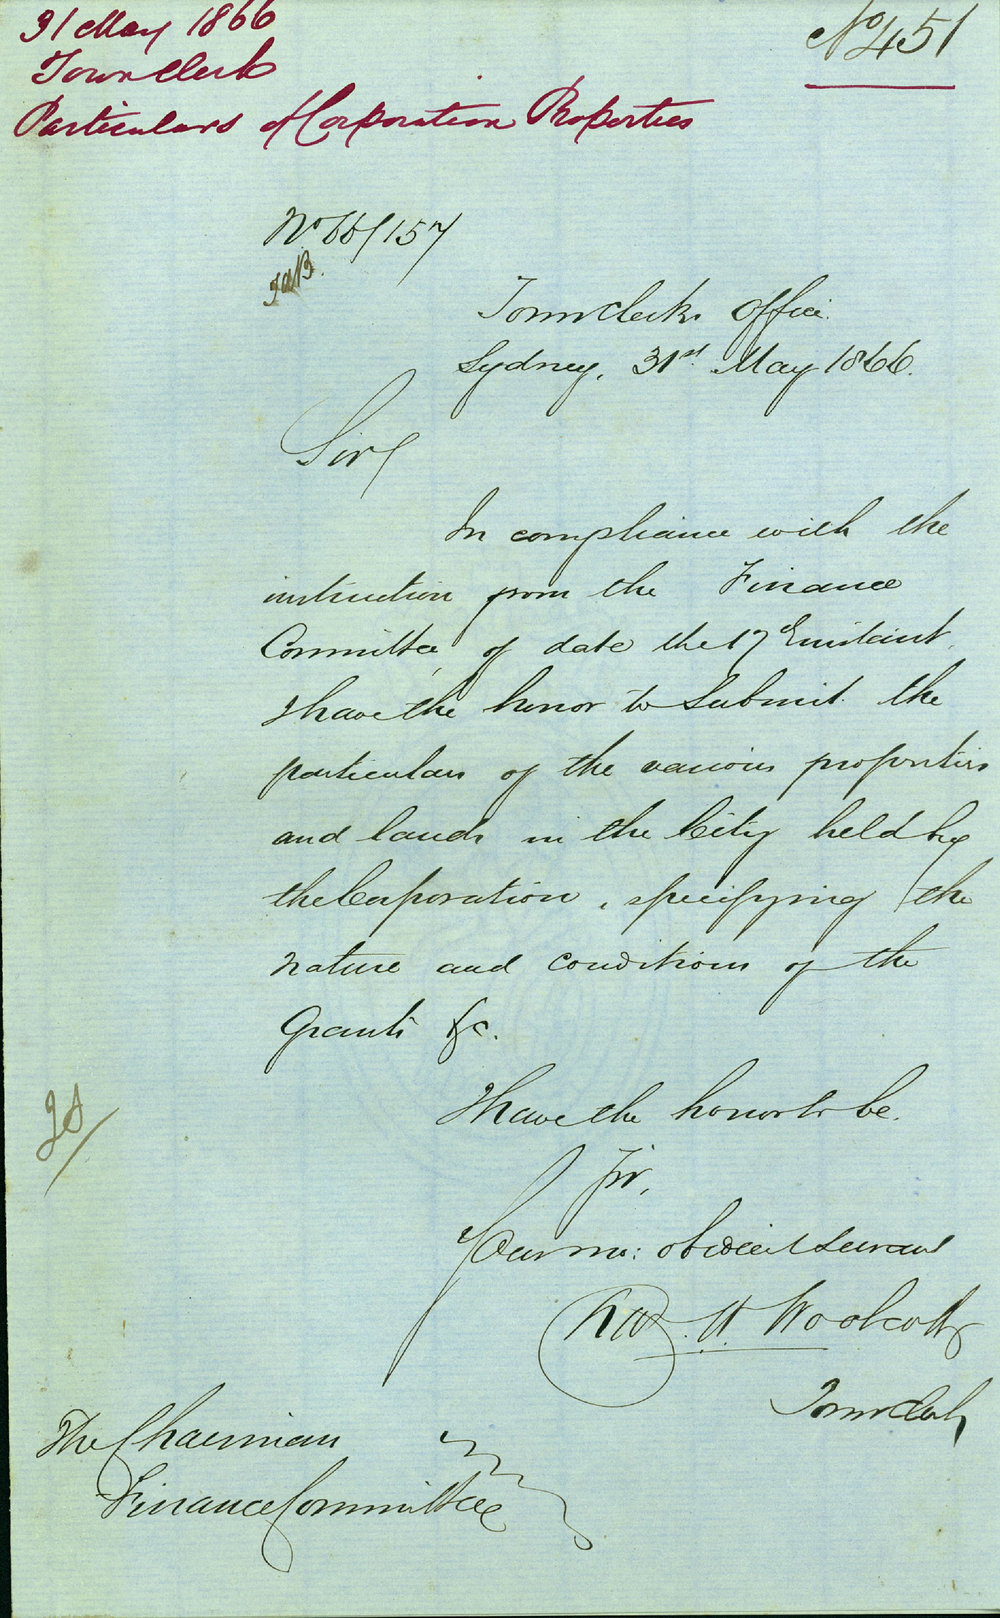 31 May 1866
No 451
Town Clerk
Particulars of Corporation Properties
No 66/157
Town Clerks Office
Sydney, 31st May 1866.
Sir/
In compliance with the
instruction from the Finance
Committee, of date the 17th instant,
I have the honor to submit the
particulars of the various properties
and lands in the City held by
the Corporation, specifying the
nature and conditions of the
Grants &c.
I have the honor to be.
Sir,
Your mo: obedient servant
Chas. H. Woolcott
Town Clerk
The Chairman
Finance Committee